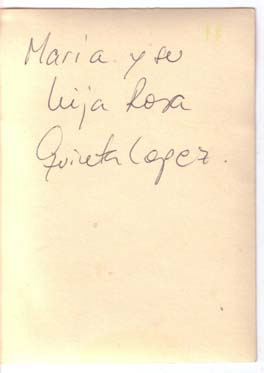 María y su
hija Rosa
Quieta Lopez.